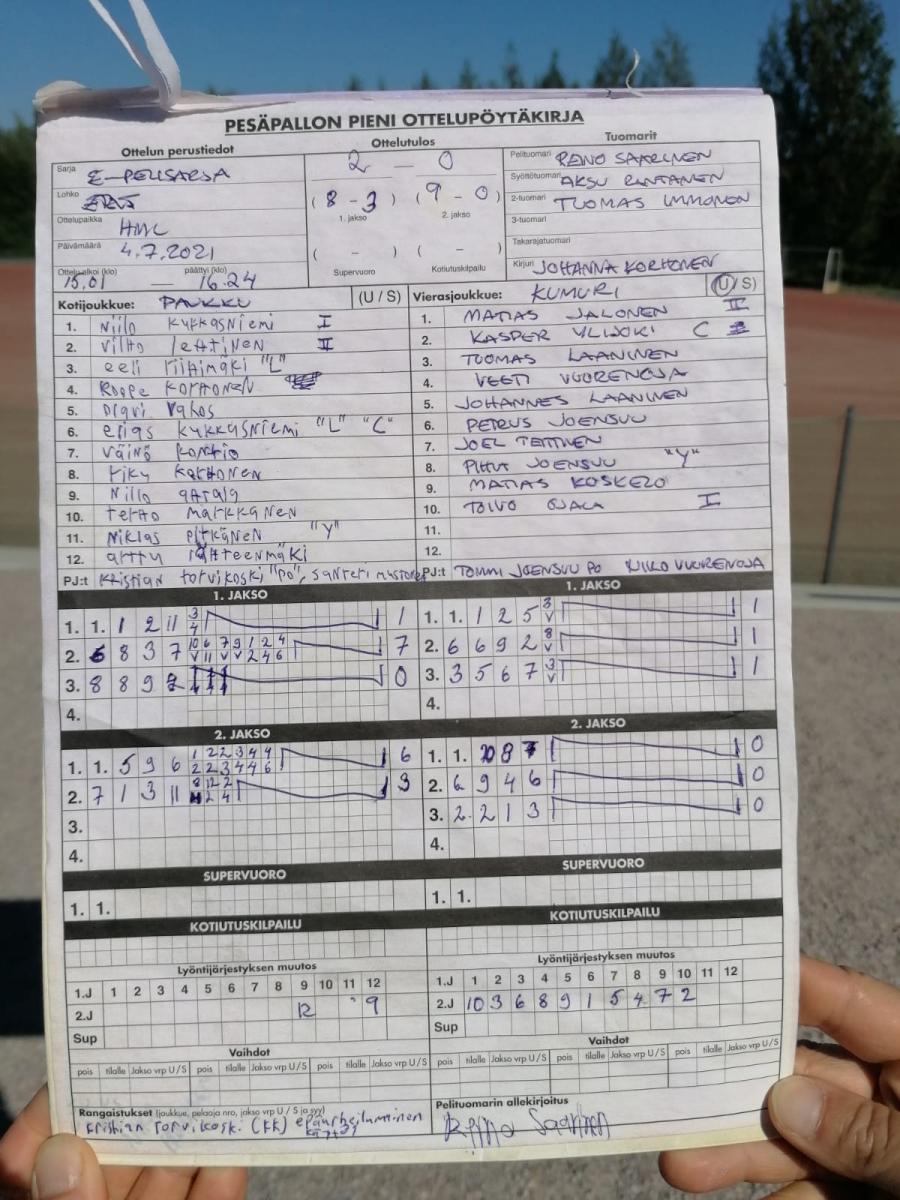 PESÄPALLON PIENI OTTELUPÖYTÄKIRJA
Ottelun perustiedot
Sarja E-PELISARJA
Lohko
Ottelupaikka HMC
Päivämäärä 4.7.2021
Ottelu alkoi (klo) 15.01 — päättyi (klo) 16.24
Ottelutulos
2 — 0
(8 - 3) (9 - 0)
1. jakso 2. jakso
( - ) ( - )
Supervuoro Kotiutuskilpailu
Tuomarit
Pelituomari REINO SAARINEN
Syöttötuomari AKSU RINTANEN
2-tuomari TUOMAS IMMONEN
3-tuomari
Takarajatuomari
Kirjuri JOHANNA KORHONEN
Kotijoukkue: PAUKKU (U / S)
1. Niilo kykkäsniemi I
2. vilho lehtinen II
3. eeli riihimäki "L"
4. Roope korhonen
5. olavi
6. elias kykkäsniemi "L" "C"
7. väinö kontio
8. riku korhonen
9. Niilo
10. terho markkanen
11. Niklas pitkänen "Y"
12. arttu lähteenmäki
PJ:t kristian torvikoski "PO", santeri
Vierasjoukkue: KUMURI (U / S)
1. MATIAS JALONEN II
2. KASPER YLIJOKI C
3. TUOMAS LAANINEN
4. VEETI VUORENOJA
5. JOHANNES LAANINEN
6. PETRUS JOENSUU
7. JOEL TEITTINEN
8. PIHUT JOENSUU "Y"
9. MATIAS KOSKELO
10. TOIVO OJALA I
11.
12.
PJ:t TOMMI JOENSUU PO NIILO VUORENOJA
1. JAKSO
1. 1. 1 2 11 3 1
4
2. 6 8 3 7 10 6 7 9 1 2 4 7
V 11 V V 2 4 6
3. 8 8 9 2 0
4.
1. JAKSO
1. 1. 1 2 5 3 1
V
2. 6 6 9 2 8 1
V
3. 3 5 6 7 3 1
V
4.
2. JAKSO
1. 1. 5 9 6 1 2 2 3 4 4 6
2 2 3 4 4 6
2. 7 1 3 11 8 12 2 3
2 4
3.
4.
2. JAKSO
1. 1. 8 7 0
2. 6 9 4 6 0
3. 2. 2 1 3 0
4.
SUPERVUORO
1. 1.
SUPERVUORO
1. 1.
KOTIUTUSKILPAILU
KOTIUTUSKILPAILU
Lyöntijärjestyksen muutos
1.J 1 2 3 4 5 6 7 8 9 10 11 12
2.J 12 9
Sup
Lyöntijärjestyksen muutos
1.J 1 2 3 4 5 6 7 8 9 10 11 12
2.J 10 3 6 8 9 1 5 4 7 2
Sup
Vaihdot
pois tilalle Jakso vrp U / S pois tilalle Jakso vrp U / S pois tilalle Jakso vrp U / S
Vaihdot
pois tilalle Jakso vrp U / S pois tilalle Jakso vrp U / S pois tilalle Jakso vrp U / S
Rangaistukset (joukkue, pelaaja nro, jakso vrp U / S ja syy)
Kristian Torvikoski (KK) epäurheilumainen
Pelituomarin allekirjoitus
Reino Saarinen